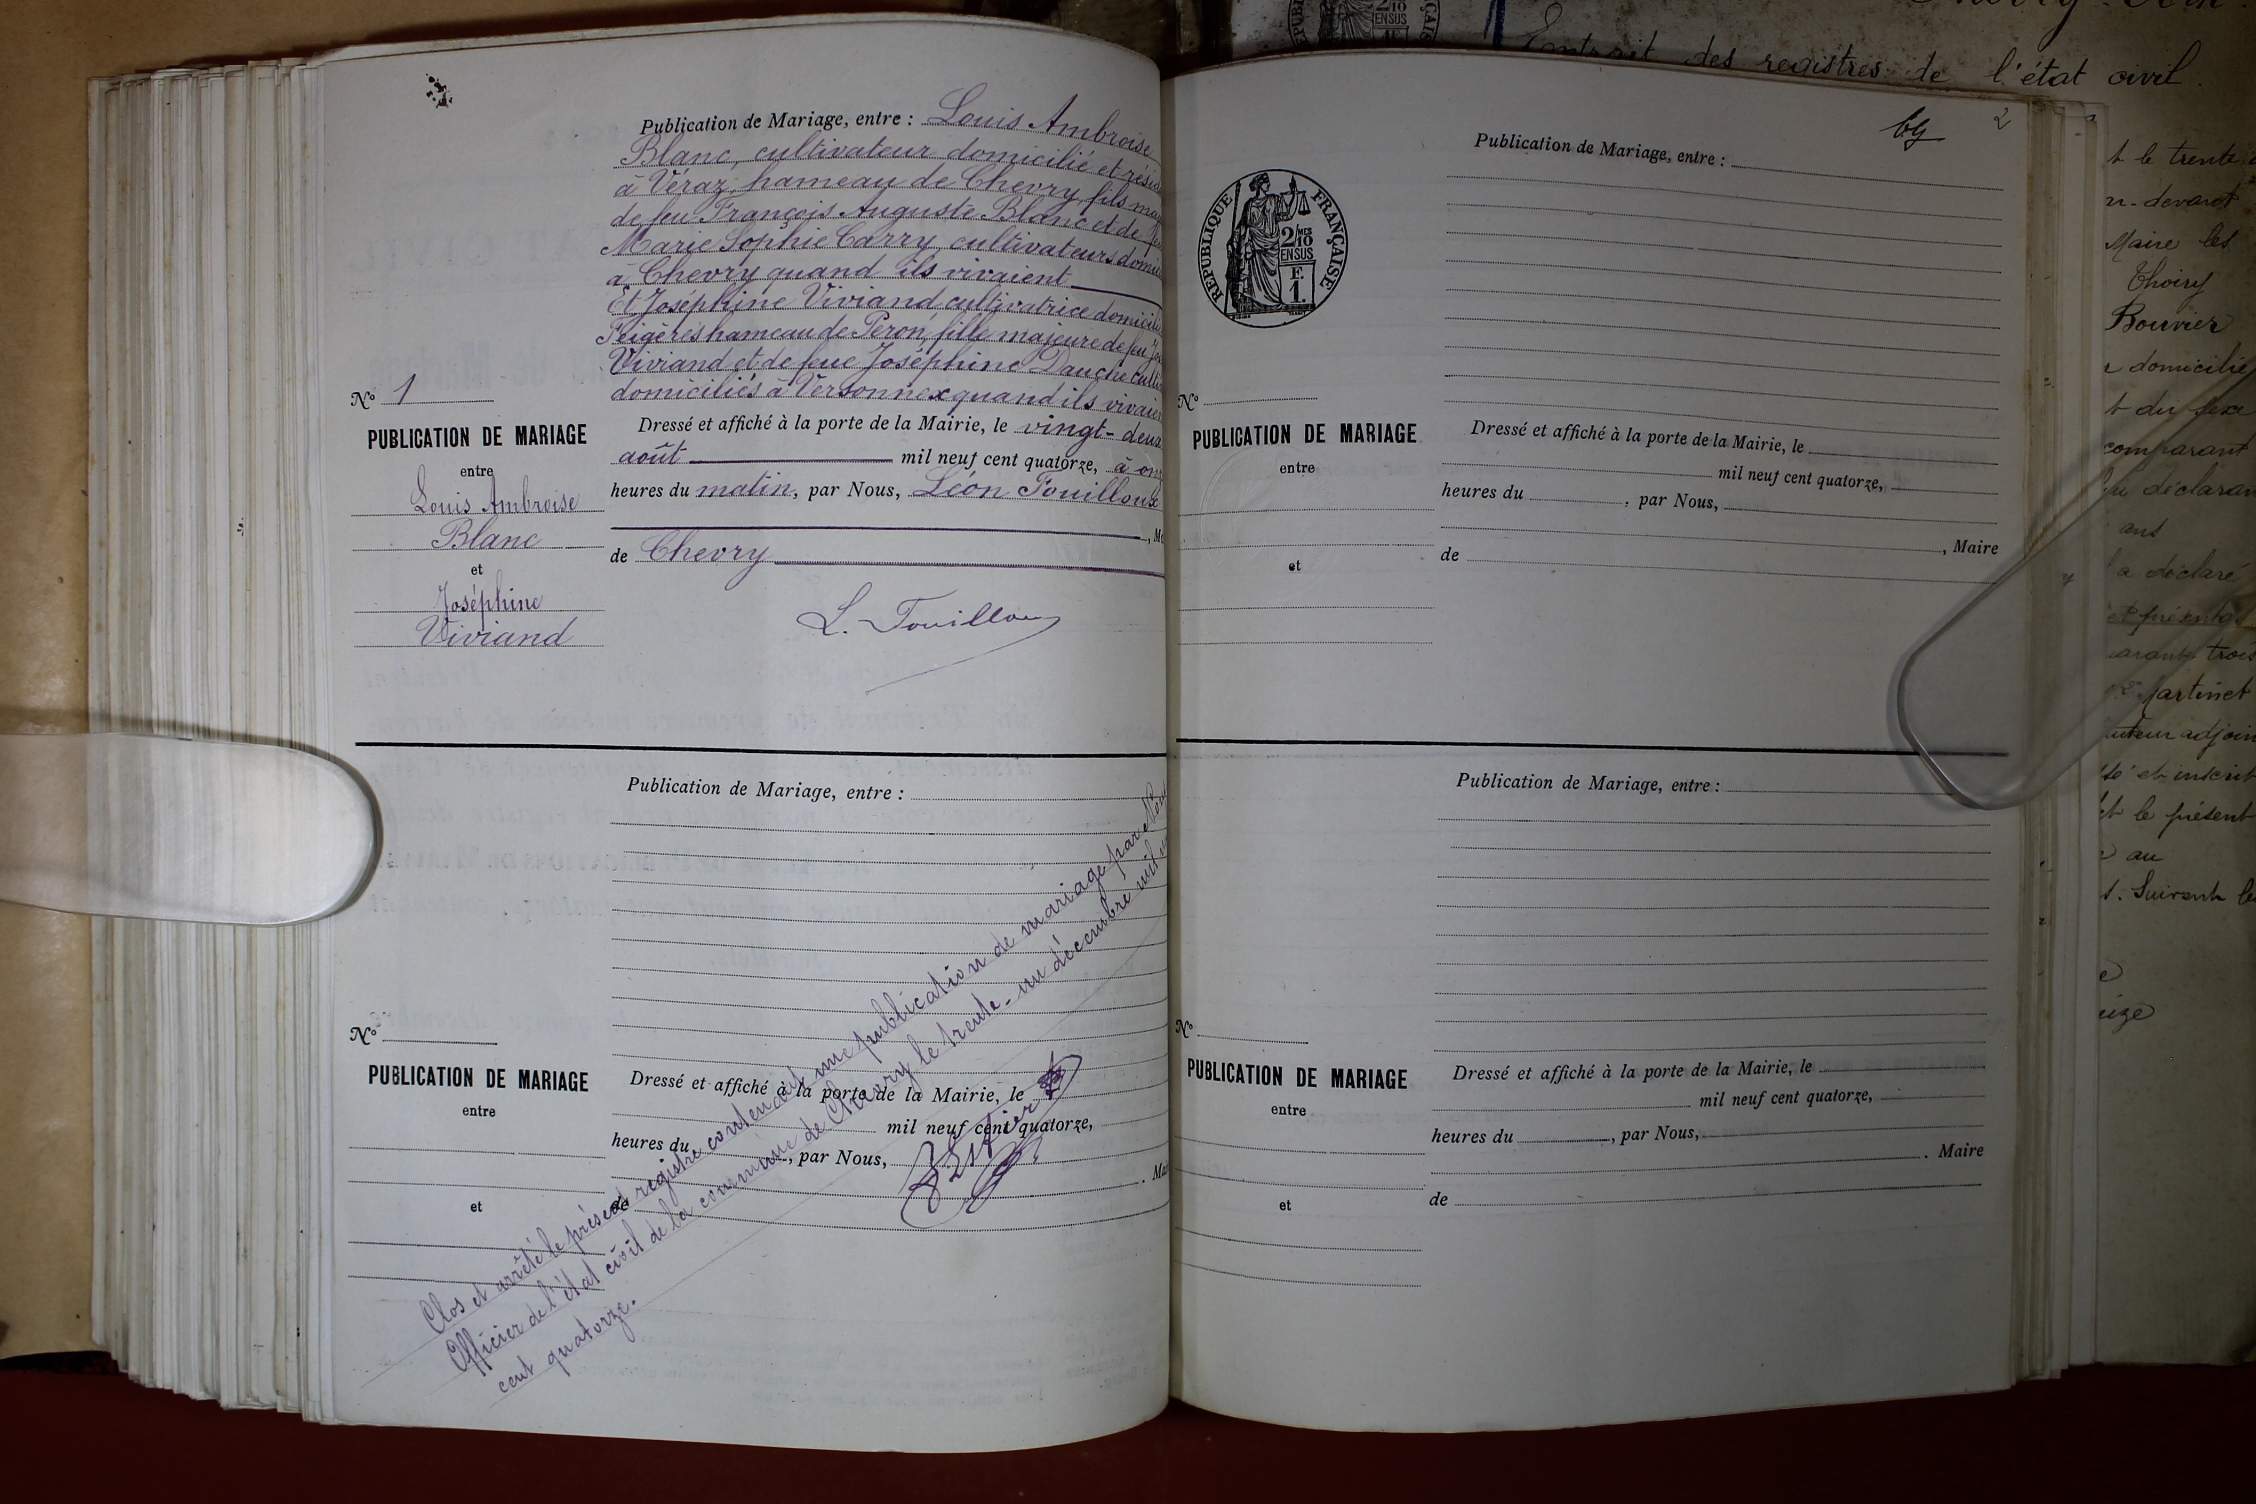 Publication de Mariage, entre : Louis Ambroise
Blanc, cultivateur domicilié et résid
à Véraz, hameau de Chevry, fils maj
de feu François Auguste Blanc et de feu
Marie Sophie Carry, cultivateurs domic
à Chevry quand ils vivaient
Et Joséphine Viviand, cultivatrice domicili
Feigères hameau de Peron, fille majeure de feu Jos
Viviand et de feue Joséphine Dauche culti
domiciliés à Versonnex quand ils vivaien
Nº 1
PUBLICATION DE MARIAGE
entre
Louis Ambroise
Blanc
et
Joséphine
Viviand
Dressé et affiché à la porte de la Mairie, le vingt-deux
août mil neuf cent quatorze, à onz
heures du matin, par Nous, Léon Fouilloux
, Ma
de Chevry
L. Fouilloux
Publication de Mariage, entre :
Nº
PUBLICATION DE MARIAGE
entre
et
Dressé et affiché à la porte de la Mairie, le
mil neuf cent quatorze,
heures du , par Nous,
. Mai
de
Clos et arrêté le présent registre contenant une publication de mariage par Nous
Officier de l'état civil de la commune de Chevry le trente-un décembre mil
cent quatorze.
2
Publication de Mariage, entre :
RÉPUBLIQUE FRANÇAISE
2/MES
10
EN SUS
F.
1.
Nº
PUBLICATION DE MARIAGE
entre
et
Dressé et affiché à la porte de la Mairie, le
mil neuf cent quatorze,
heures du , par Nous,
, Maire
de
Publication de Mariage, entre :
Nº
PUBLICATION DE MARIAGE
entre
et
Dressé et affiché à la porte de la Mairie, le
mil neuf cent quatorze,
heures du , par Nous,
. Maire
de
Extrait des registres de l'état civil.
t le trente
n-devant
Maire les
Thoiry
Bouvier
domicilié
t du sexe
comparant
déclaran
ans
a déclaré
et présenta
arante trois
Martinet
tuteur adjoin
et inscrit
et le présent
au
Suivent les